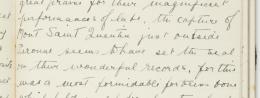 great praise for their magnificent
performances of late. The capture of
Mont Saint Quentin just outside
Peronne seems to have set the seal
on their wonderful records, for this
was a most formidable